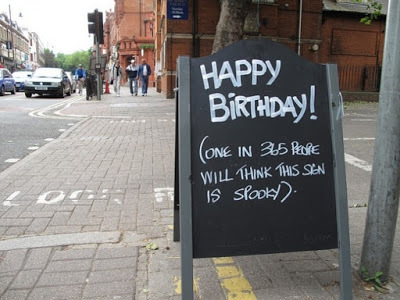 HAPPY
BIRTHDAY!
(ONE IN 365 PEOPLE
WILL THINK THIS SIGN
IS SPOOKY).
LOOK